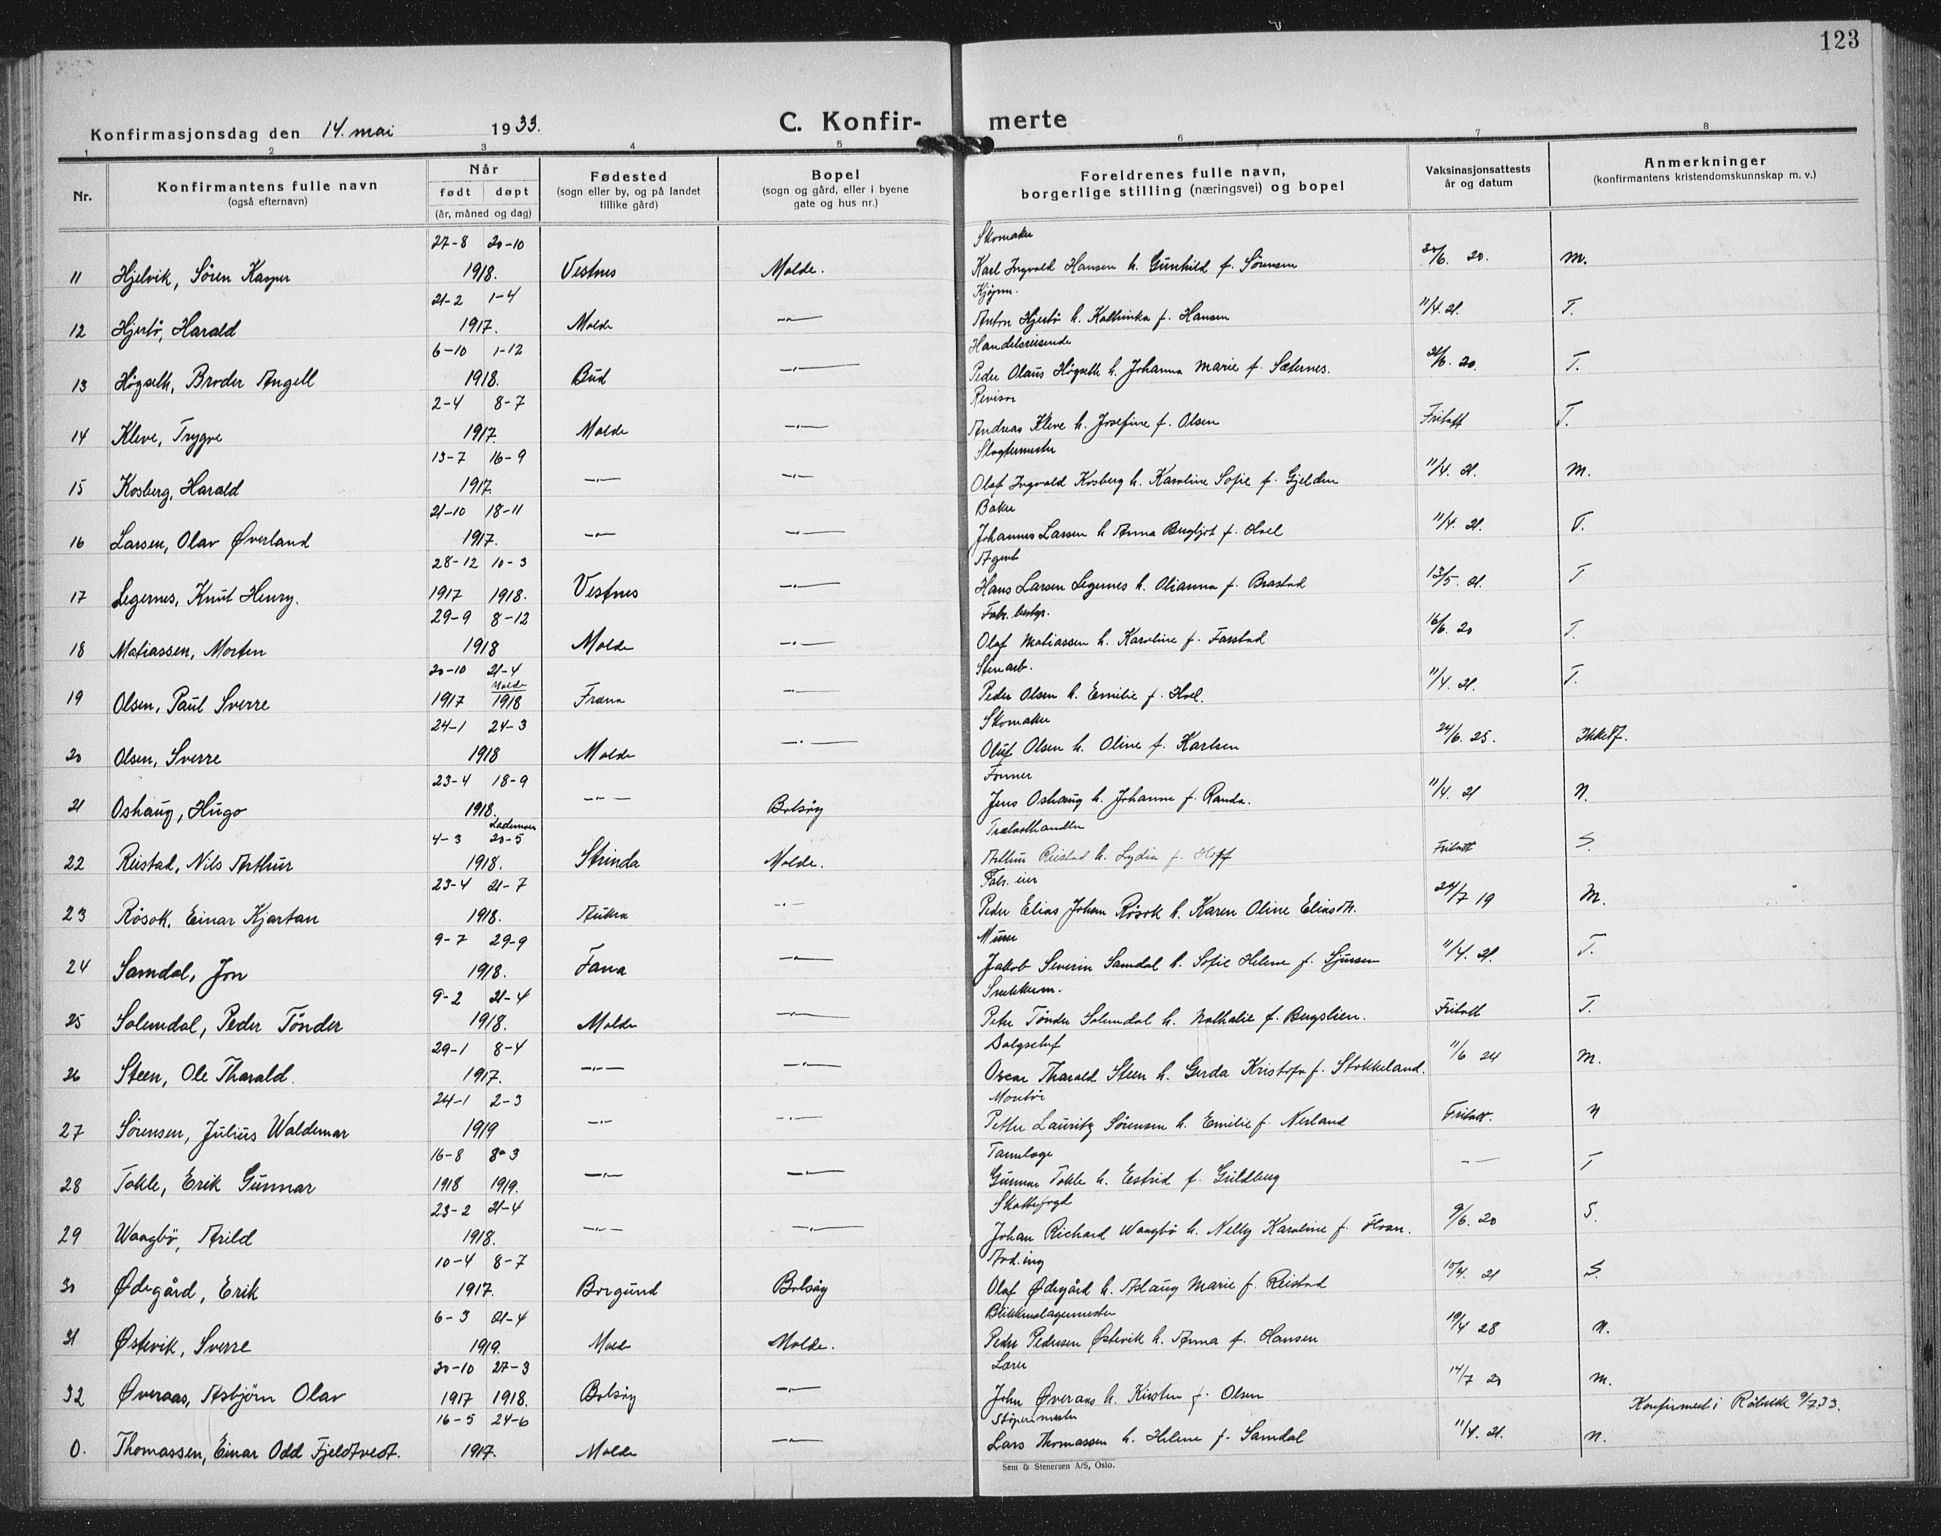 123
Konfirmasjonsdag den 14. mai 1933. C. Konfir- merte
1 2 3 4 5 6 7 8
Nr. Konfirmantens fulle navn (også efternavn) Når født døpt (år, måned og dag) Fødested (sogn eller by, og på landet tillike gård) Bopel (sogn og gård, eller i byene gate og hus nr.) Foreldrenes fulle navn, borgerlige stilling (næringsvei) og bopel Vaksinasjonsattests år og datum Anmerkninger (konfirmantens kristendomskunnskap m. v.)
27-8 20-10 Skomaker
11 Hjelvik, Søren Kasper 1918. Vestnes Molde. Karl Ingvald Hansen h. Gunhild f. Sørensen 20. M.
21-2 1-4 Kjøpm.
12 Hjertø, Harald 1917. Molde -"- Anton Hjertø h. Kathinka f. Hansen 11/4. 21. T.
6-10 1-12 Handelsreisende
13 Høgseth, Broder Angell 1918. Bud -"- Peder Olaus Høgseth h. Johanna Marie f. Sæternes. 20. T.
2-4 8-7 Revisor
14 Kleve, Trygve 1917. Molde -"- Andreas Kleve h. Josefine f. Olsen Fritatt T.
13-7 16-9 Slagtermester
15 Kosberg, Harald 1917. -"- -"- Olaf Ingvald Kosberg h. Karoline Sofie f. Gjelden 11/4. 21. M.
21-10 18-11 Baker
16 Larsen, Olav Øverland 1917. -"- -"- Johannes Larsen h. Anna Bergljot f. Hoel 11/4. 21. T.
28-12 10-3 Agent
17 Legernes, Knut Henry. 1917 1918. Vestnes -"- Hans Larsen Legernes h. Olianna f. Brastad 13/5. 21. T
29-9 8-12 Fabr. bestyr.
18 Matiassen, Morten 1918 Molde -"- Olaf Matiassen h. Karoline f. Farstad 16/6. 20 T.
20-10 21-4 Stenarb.
Molde
19 Olsen, Paul Sverre 1917 1918 Fræna -"- Peder Olsen h. Emilie f. Hoel. 11/4. 21. T.
24-1 24-3 Skomaker
20 Olsen, Sverre 1918 Molde -"- Oluf Olsen h. Oline f. Karlsen 24/6. 25.
23-4 18-9 Former
21 Oshaug, Hugo 1918. -"- Bolsøy Jens Oshaug h. Johanne f. Randa. 11/4. 21 N.
Lademoen
4-3 20-5 Trelasthandler
22 Reistad, Nils Arthur 1918. Strinda Molde. Arthur Reistad h. Lydia f. Hoff Fritatt S.
23-4 21-7 Fabr. eier
23 Røsok, Einar Kjartan 1918. Aukra -"- Peder Elias Johan Røsok h. Karen Oline Eliasdtr. 24/7 19 M.
9-7 29-9 Murer
24 Samdal, Jon 1918. Fana -"- Jakob Severin Samdal h. Sofie Helene f. Sjursen 11/4. 21. T.
9-2 21-4 Snekkerm.
25 Solemdal, Peder Tønder 1918. Molde -"- Peter Tønder Solemdal h. Nathalie f. Bergslien. Fritatt T.
29-1 8-4 Salgschef
26 Steen, Ole Tharald. 1917. -"- -"- Oscar Tharald Steen h. Gerda Kristofa f. Stokkeland. 11/6 24 M.
24-1 2-3 Montør
27 Sørensen, Julius Waldemar 1919 -"- -"- Petter Lauritz Sørensen h. Emilie f. Nerland Fritatt. N
16-8 8-3 Tannlæge
28 Tokle, Erik Gunnar 1918 1919. -"- -"- Gunnar Tokle h. Estrid f. Guldberg - - T
23-2 21-4 Skattefogd
29 Waagbø, Arild 1918. -"- -"- Johan Richard Waagbø h. Nelly Karoline f. 9/6. 20 S.
10-4 8-7 Avd.ing
30 Ødegård, Erik 1917. Borgund Bolsøy Olaf Ødegård h. Aslaug Marie f. Reistad 10/4. 21 S.
6-3 21-4 Blikkenslagermester
31 Østevik, Sverre 1919. Molde Molde. Peder Pedersen Østevik h. Anna f. Hansen 19/4 28 N.
20-10 27-3 Lærer
32 Øveraas, Asbjørn Olav 1917 1918. Bolsøy -"- John Øveraas h. Kirsten f. Olsen 14/7 20 M. Konfirmert i 9/7 33.
16-5 24-6 Støperimester
0. Thomassen, Einar Odd Fjeldtvedt. 1917. Molde -"- Lars Thomassen h. Helene f. Samdal 11/4. 21. N.
Sem & Stenersen A/S, Oslo.